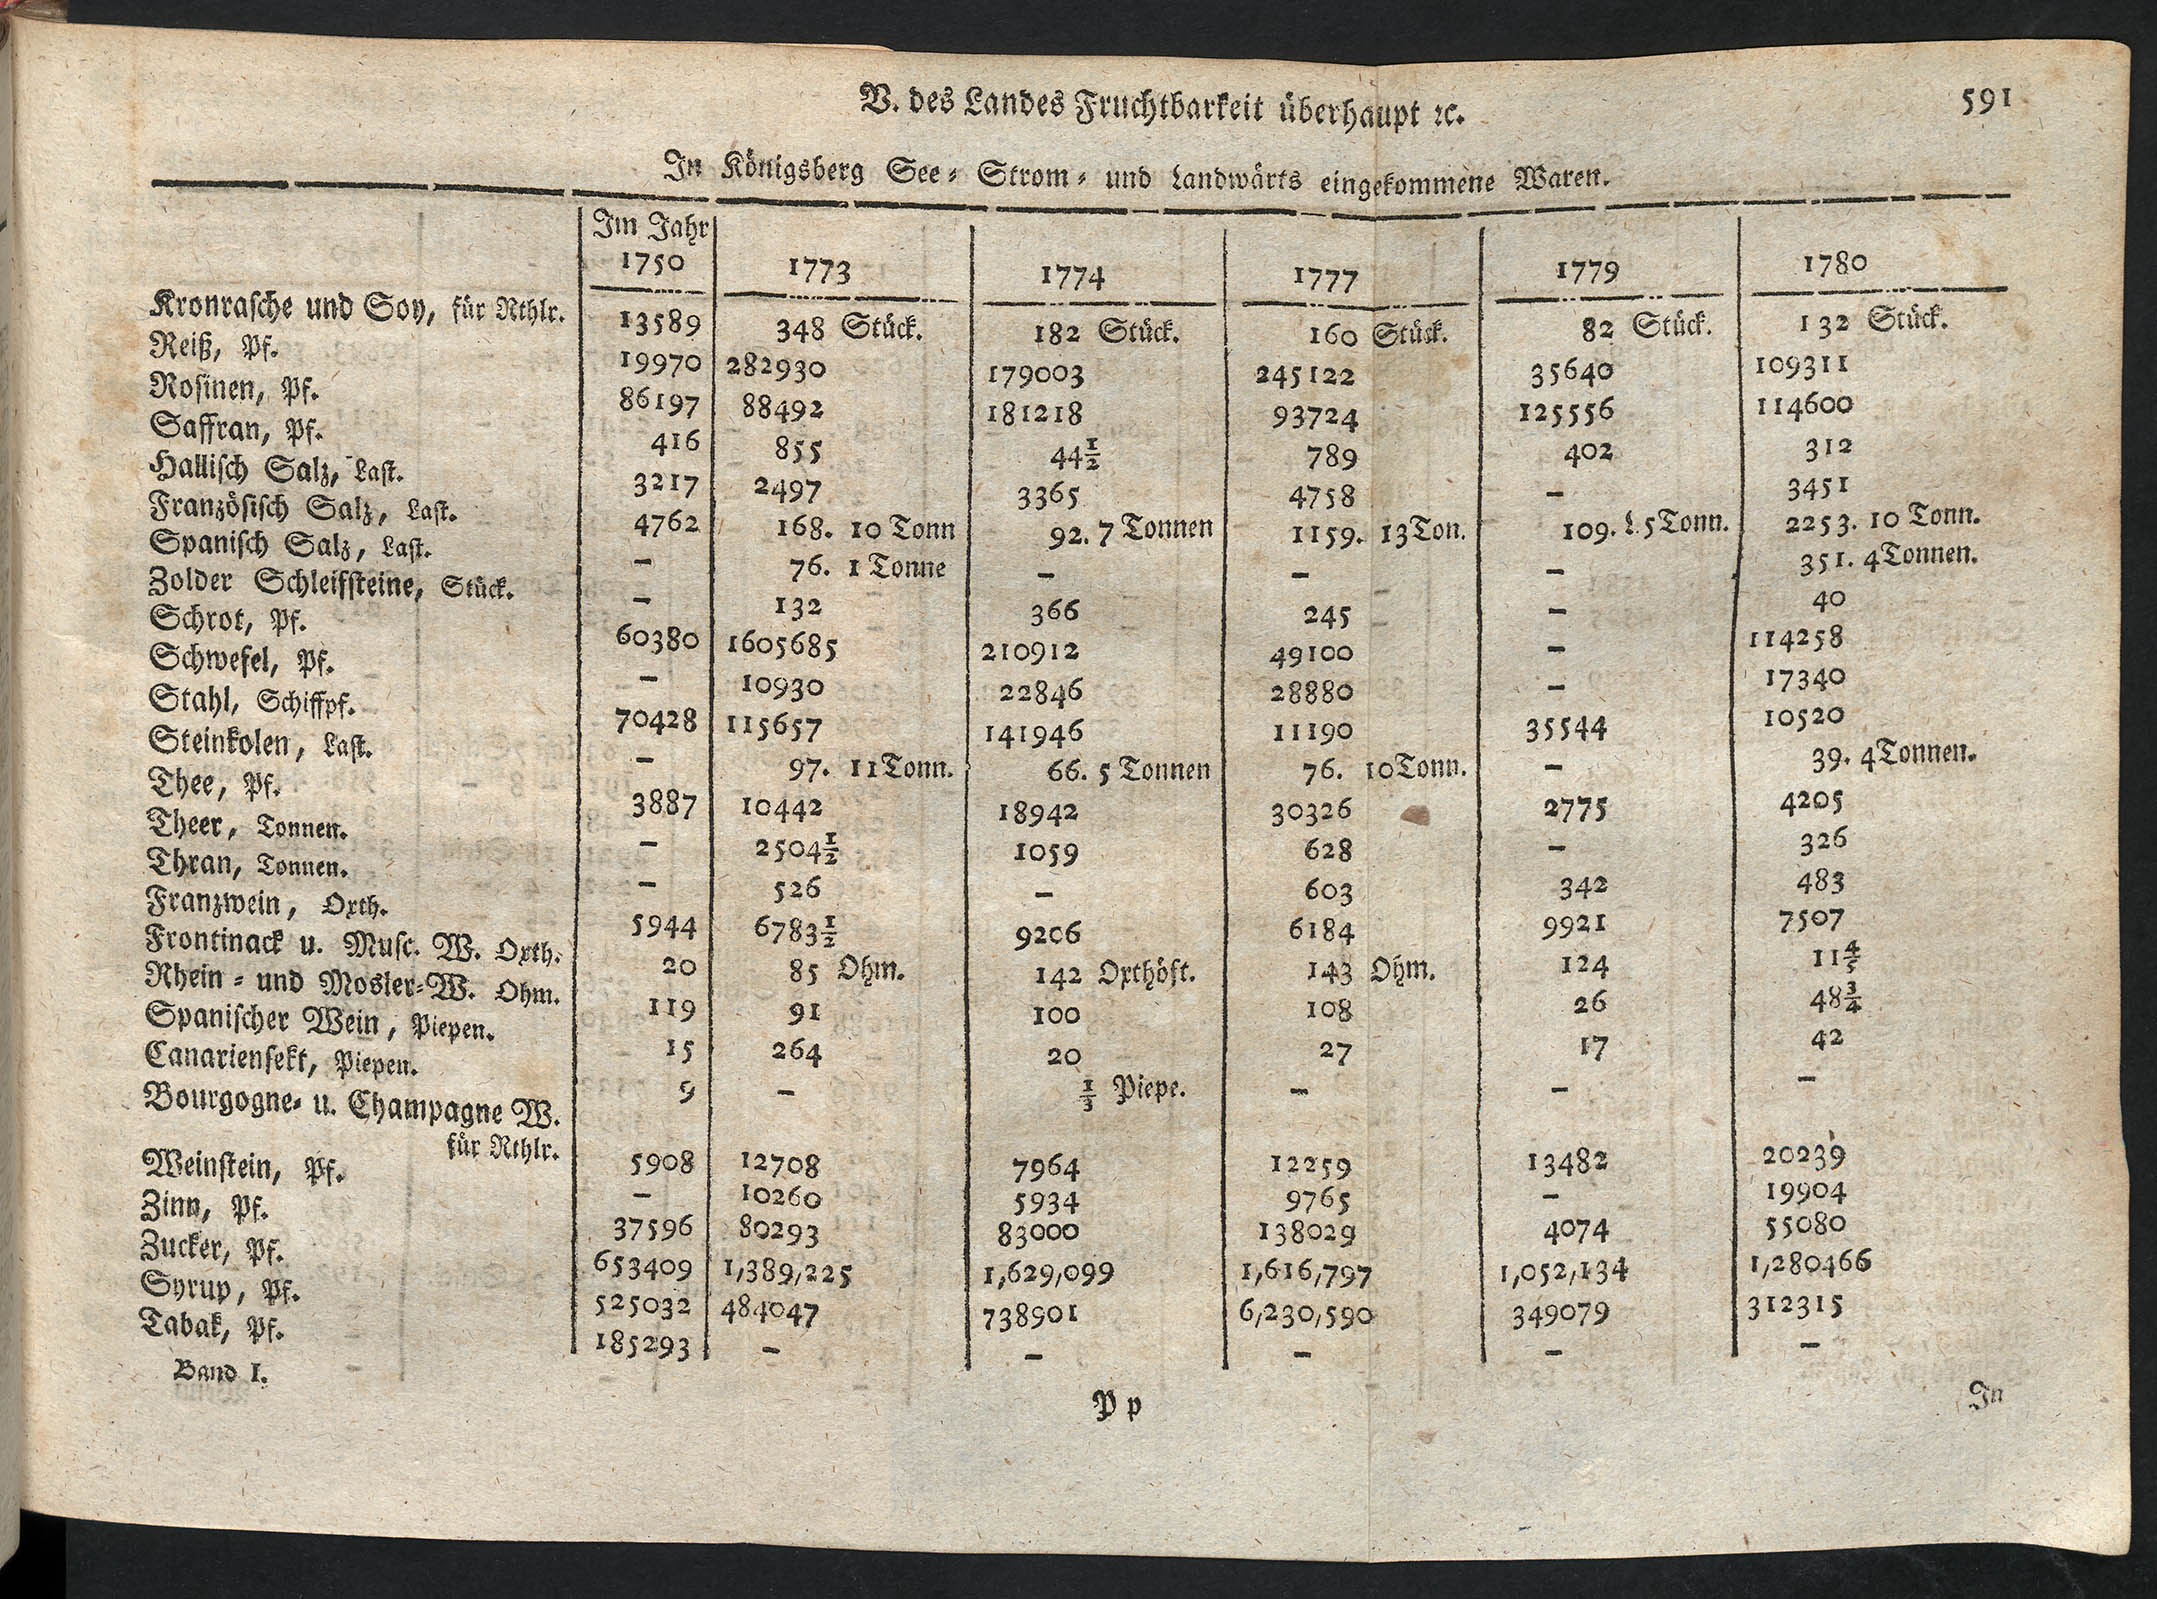 V. des Landes Fruchtbarkeit überhaupt ꝛc. 591
In Königsberg See- Strom- und Landwärts eingekommene Waren.
Im Jahr
1750 1773 1774 1777 1779 1780
Kronrasche und Soy, für Rthlr. 13589 348 Stück. 182 Stück. 160 Stück. 82 Stück. 132 Stück.
Reiß, Pf. 19970 282930 179003 245122 35640 109311
Rosinen, Pf. 86197 88492 181218 93724 125556 114600
Saffran, Pf. 416 855 44½ 789 402 312
Hallisch Salz, Last. 3217 2497 3365 4758 – 3451
Französisch Salz, Last. 4762 168. 10 Tonn 92. 7 Tonnen 1159. 13 Ton. 109. L. 5 Tonn. 2253. 10 Tonn.
Spanisch Salz, Last. – 76. 1 Tonne – – – 351. 4 Tonnen.
Zolder Schleifsteine, Stück. – 132 366 245 – 40
Schrot, Pf. 60380 1605685 210912 49100 – 114258
Schwefel, Pf. – 10930 22846 28880 – 17340
Stahl, Schiffpf. 70428 115657 141946 11190 35544 10520
Steinkolen, Last. – 97. 11 Tonn. 66. 5 Tonnen 76. 10 Tonn. – 39. 4 Tonnen.
Thee, Pf. 3887 10442 18942 30326 2775 4205
Theer, Tonnen. – 2504½ 1059 628 – 326
Thran, Tonnen. – 526 – 603 342 483
Franzwein, Oxth. 5944 6783½ 9206 6184 9921 7507
Frontinack u. Musc. W. Oxth. 20 85 Ohm. 142 Oxthöft. 143 Ohm. 124 11⅘
Rhein- und Mosler-W. Ohm. 119 91 100 108 26 48¾
Spanischer Wein, Piepen. 15 264 20 27 17 42
Canariensekt, Piepen. 9 – ⅓ Piepe. – – –
Bourgogne- u. Champagne W.
für Rthlr. 5908 12708 7964 12259 13482 20239
Weinstein, Pf. – 10260 5934 9765 – 19904
Zinn, Pf. 37596 80293 83000 138029 4074 55080
Zucker, Pf. 653409 1,389,225 1,629,099 1,616,797 1,052,134 1,280466
Syrup, Pf. 525032 484047 738901 6,230,590 349079 312315
Tabak, Pf. 185293 – – – – –
Band I. P p In